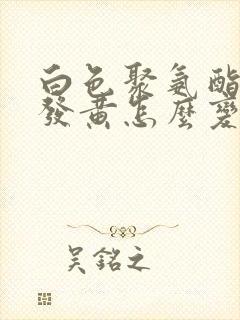 白色聚氨酯
發黃怎麼變
吳銘之